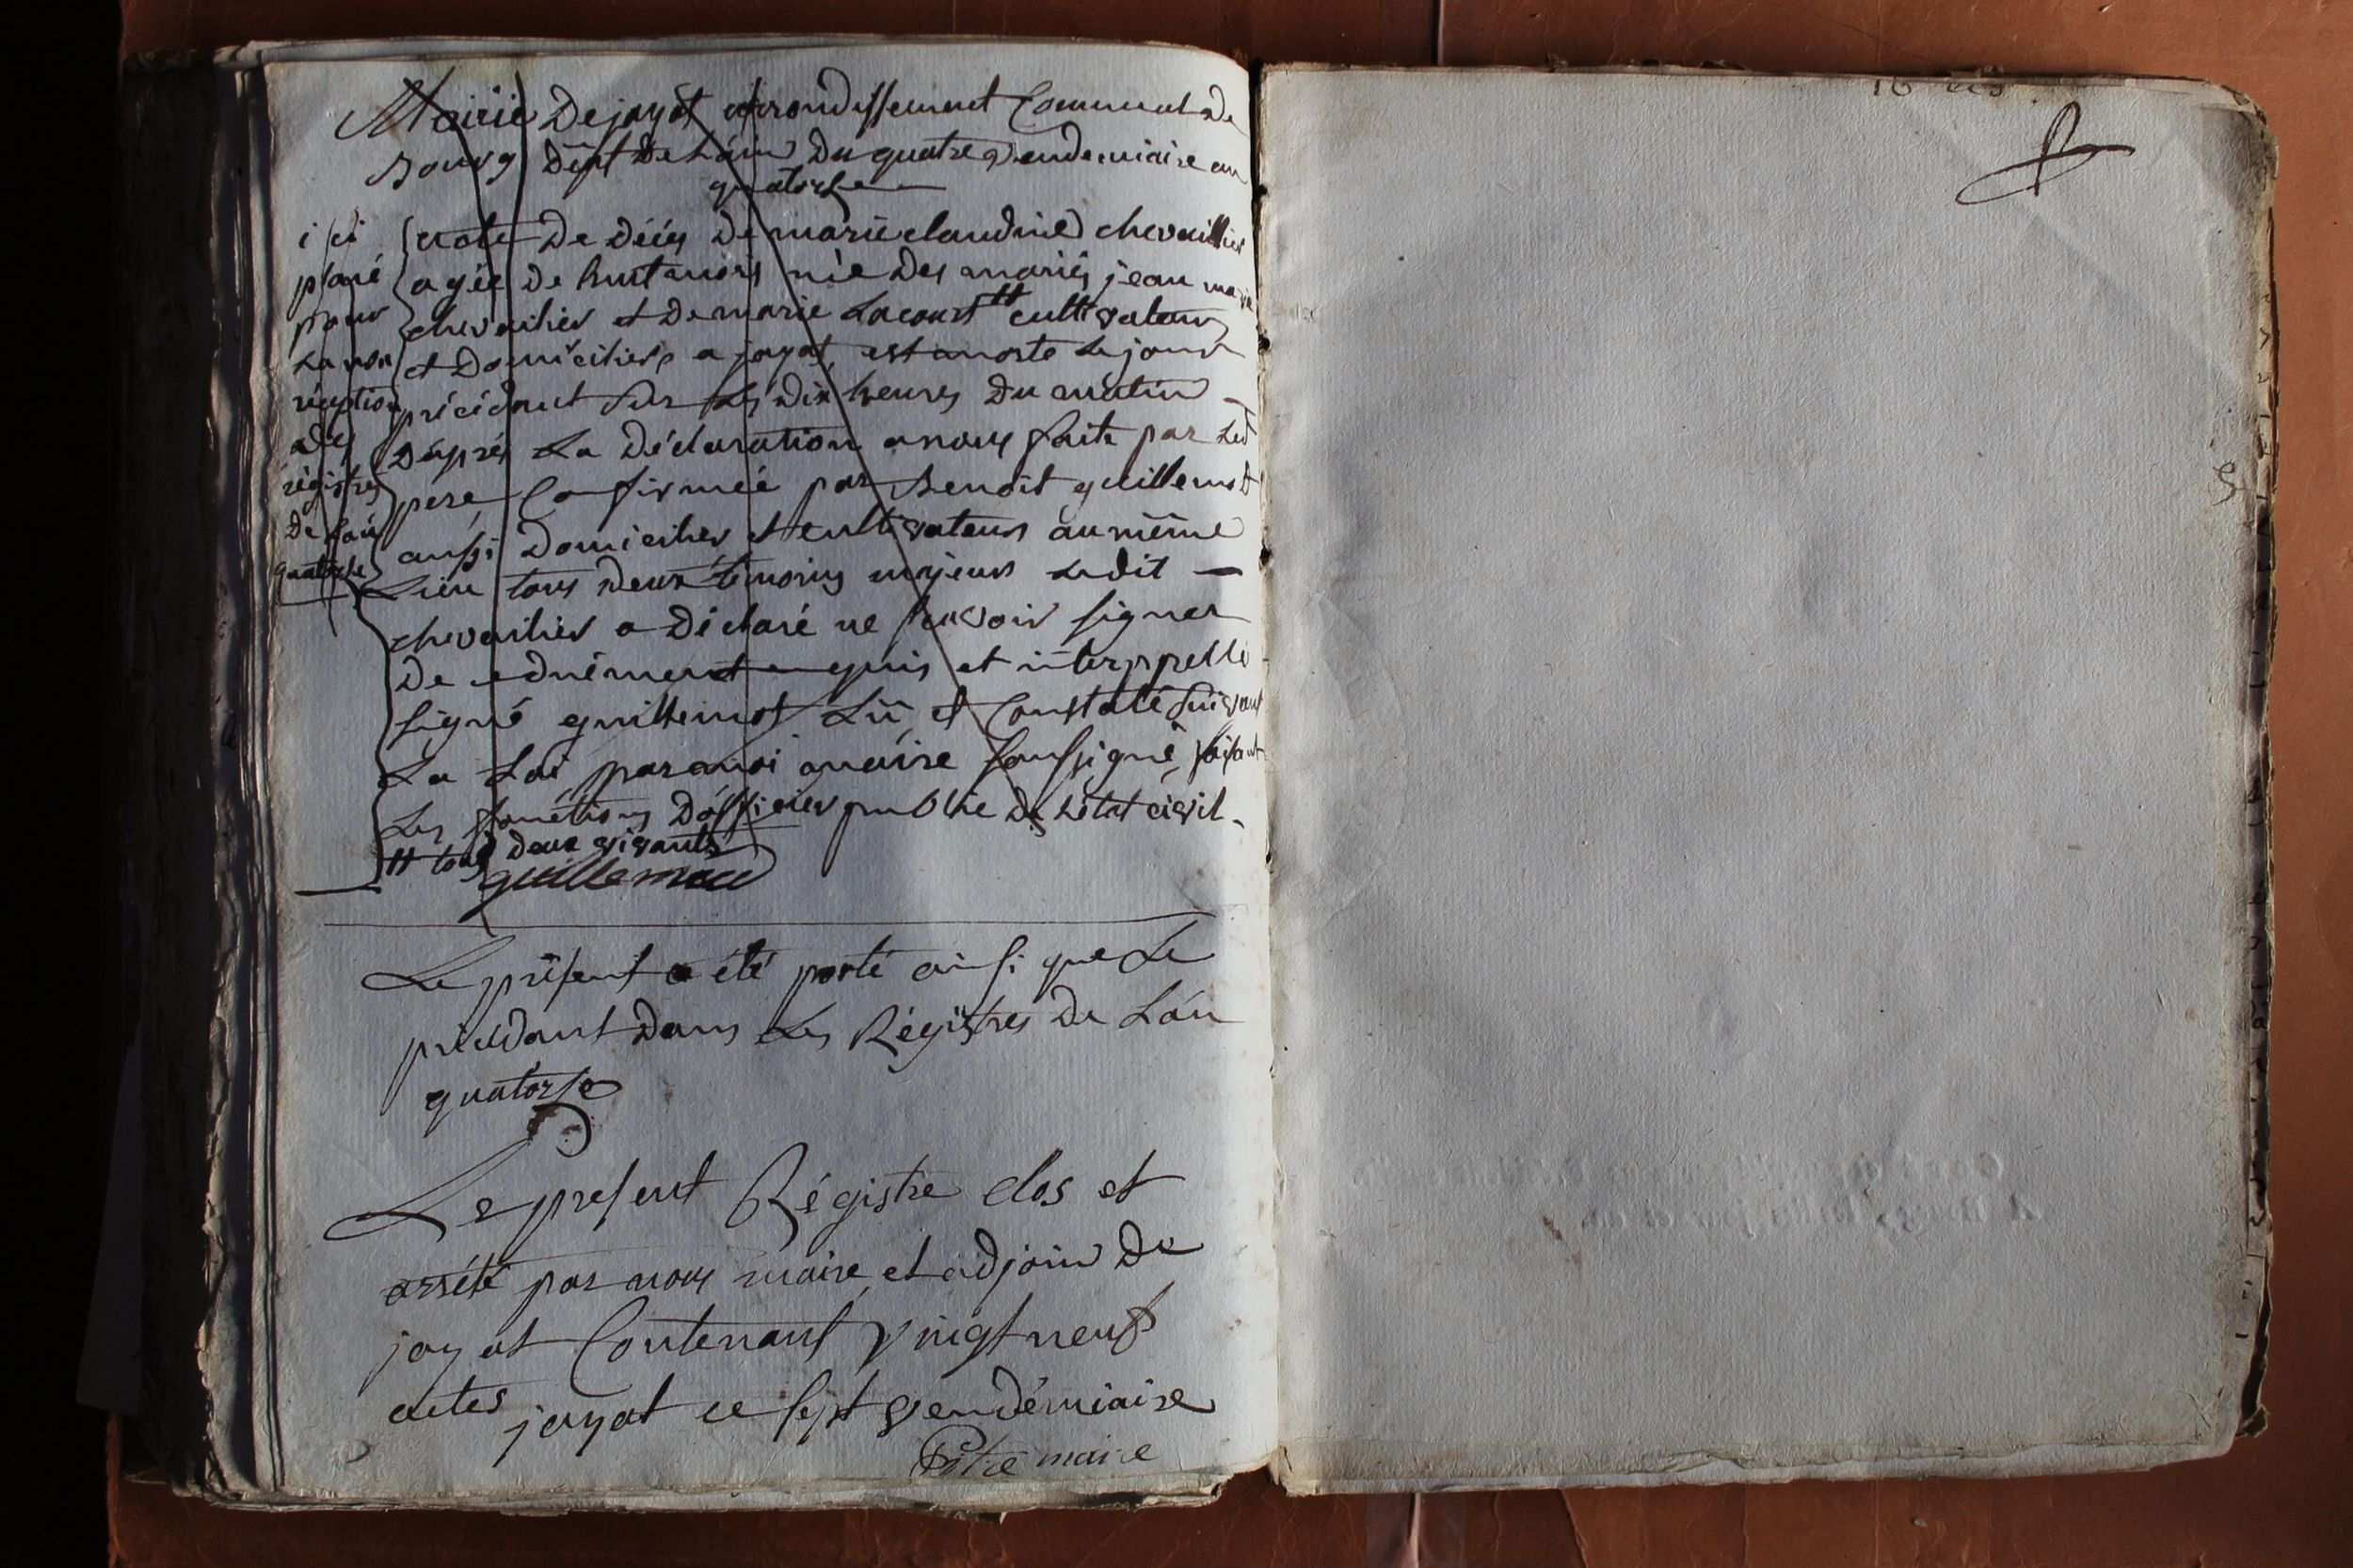 Mairie De jayat arrondissement Communal De
Bourg Dept De L'ain Du quatre vendemiaire an
quatorse
acte De Décès De marie claudine chevaillier
agée De huit mois née Des mariés jean marie
chevailier et De marie Lacourt # cultivateurs
et Domiciliers a jayat, est morte Le jour
précédent sur Les Dix heures Du matin
D'après La Déclaration a nous faite par Led
pere, Confirmée par Benoit guillemot
aussi Domicilier et cultivateur au même
Lieu tous Deux témoins majeurs Ledit —
chevailier a Déclaré ne scavoir signer
De ce duément enquis et interppellé
signé guillemot Lû et Constaté suivant
La Loi par moi maire soussigné, faisant
Les fonctions D'officier public De L'état civil
# tous Deux vivants
guillemod
ici
placé
pour
La non
réception
Des
régistres
De L'an
quatorse
Le présent a été porté ainsi que Le
précédant Dans Les Régistres De L'an
quatorse
Le present Régistre clos et
arrété par nous maire et adjoin De
jayat Contenant vingt neuf
actes jayat ce sept vendémiaire
Pitre maire